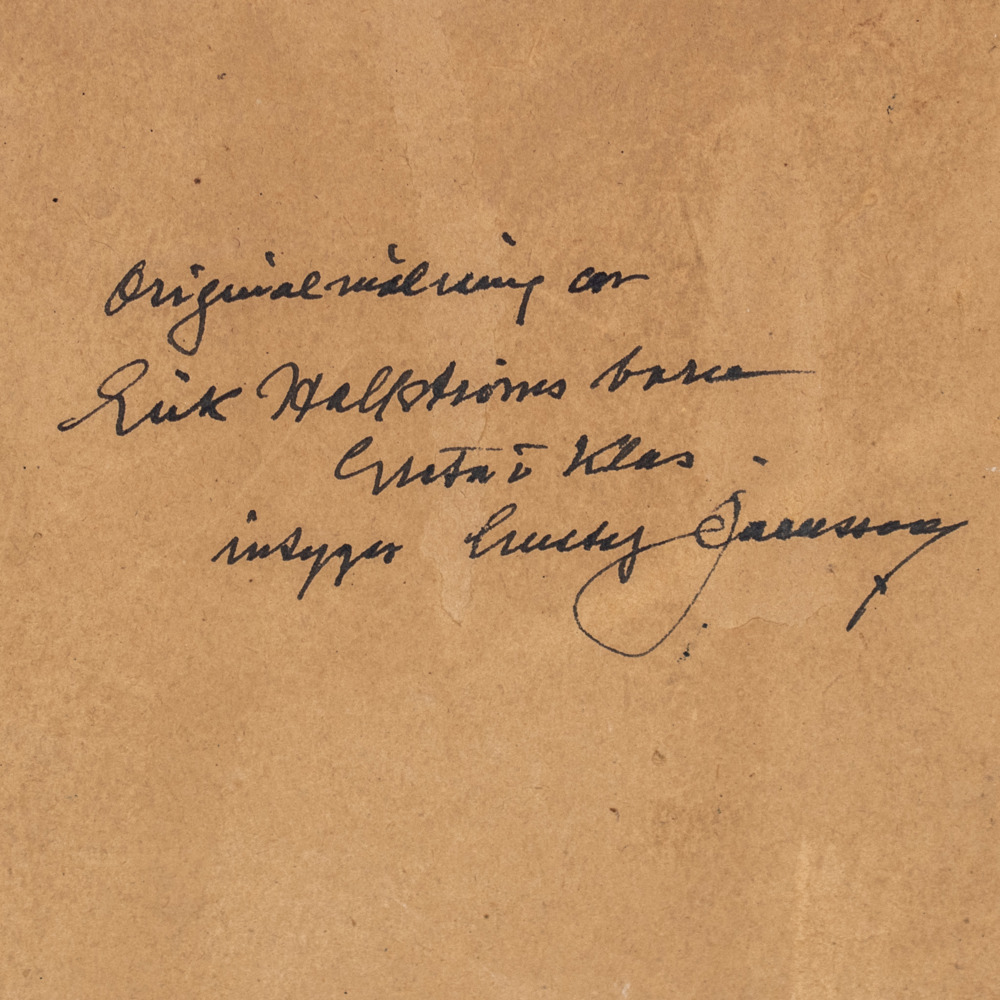 Originalmålning av
Erik Hallströms barn
Greta o Klas.
intygar Gusty Jaensson